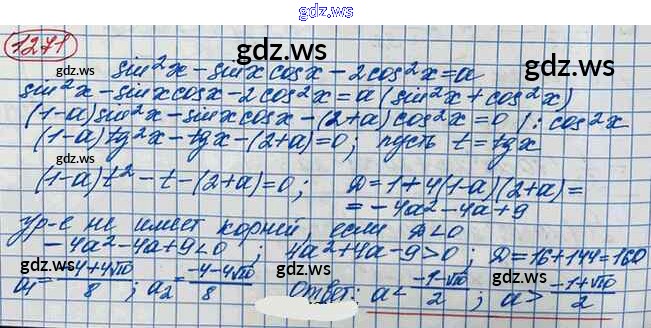 gdz.ws
1271
gdz.ws gdz.ws
sin²x - sinx cosx - 2cos²x = a
sin²x - sinx cosx - 2cos²x = a (sin²x + cos²x)
(1-a)sin²x - sinx cosx - (2+a)cos²x = 0 /: cos²x
(1-a)tg²x - tgx - (2+a) = 0; пусть t = tgx
gdz.ws gdz.ws
(1-a)t² - t - (2+a) = 0; D = 1+4(1-a)(2+a) =
= -4a² - 4a + 9
ур-е не имеет корней, если D < 0
-4a² - 4a + 9 < 0; 4a² + 4a - 9 > 0; D = 16 + 144 = 160
a₁ = (-4+4√10)/8; a₂ = (-4-4√10)/8 Ответ: a < (-1-√10)/2; a > (-1+√10)/2
gdz.ws gdz.ws